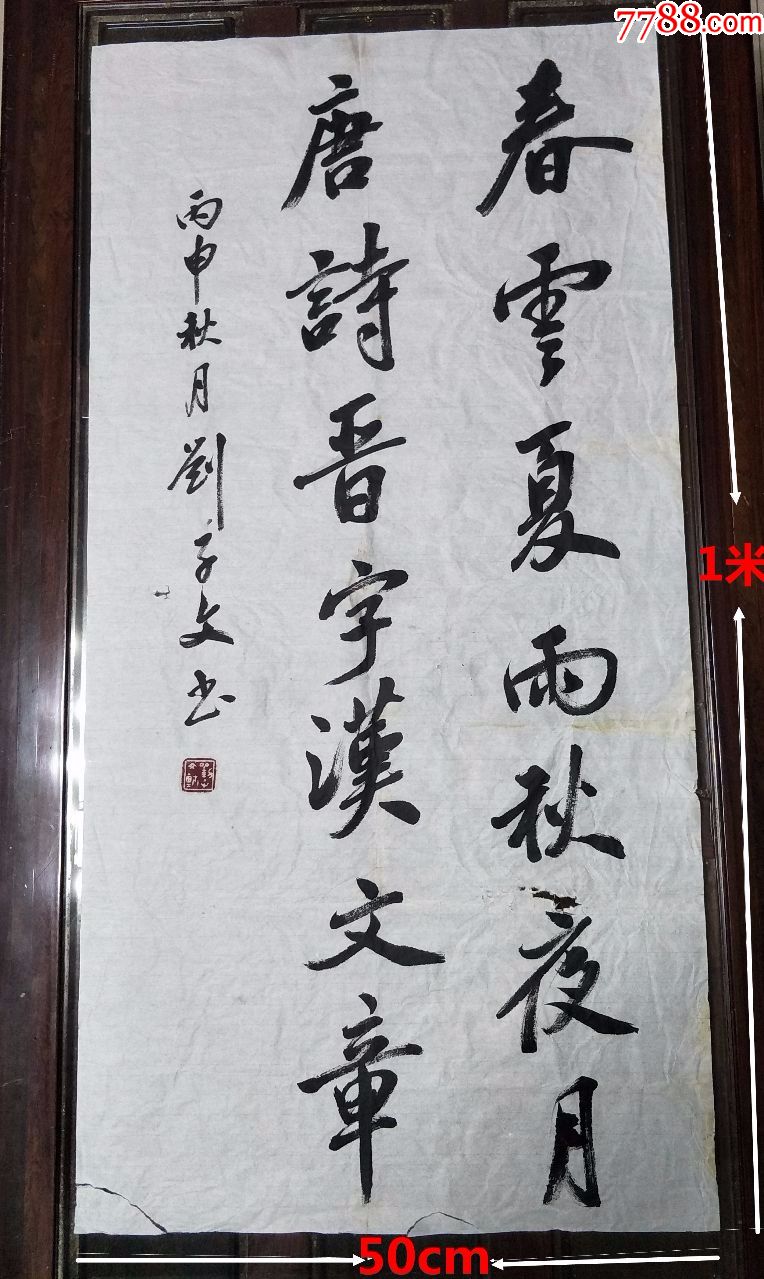 7788.com
春雲夏雨秋夜月
唐詩晉字漢文章
丙申秋月劉子文书
1米
50cm